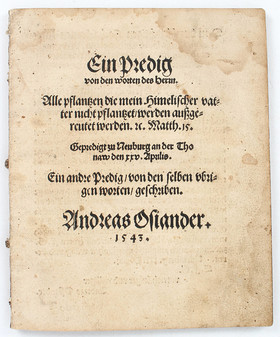 Ein Predig
von den worten des Herrn.
Alle pflantzen die mein Himelischer vat-
ter nicht pflantzet/ werden außge-
reutet werden. ꝛc. Matth. 15.
Gepredigt zu Neuburg an der Tho
naw den xxv. Aprilis.
Ein andre Predig/ von den selben vbri-
gen worten/ geschriben.
Andreas Osiander.
1543.